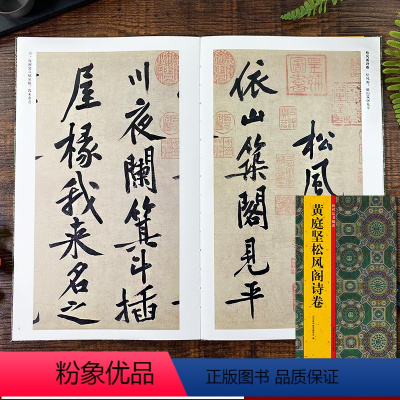 松風
依山築閣見平
川夜闌箕斗插
屋椽我来名之
黄庭坚松风阁诗卷
粉象优品